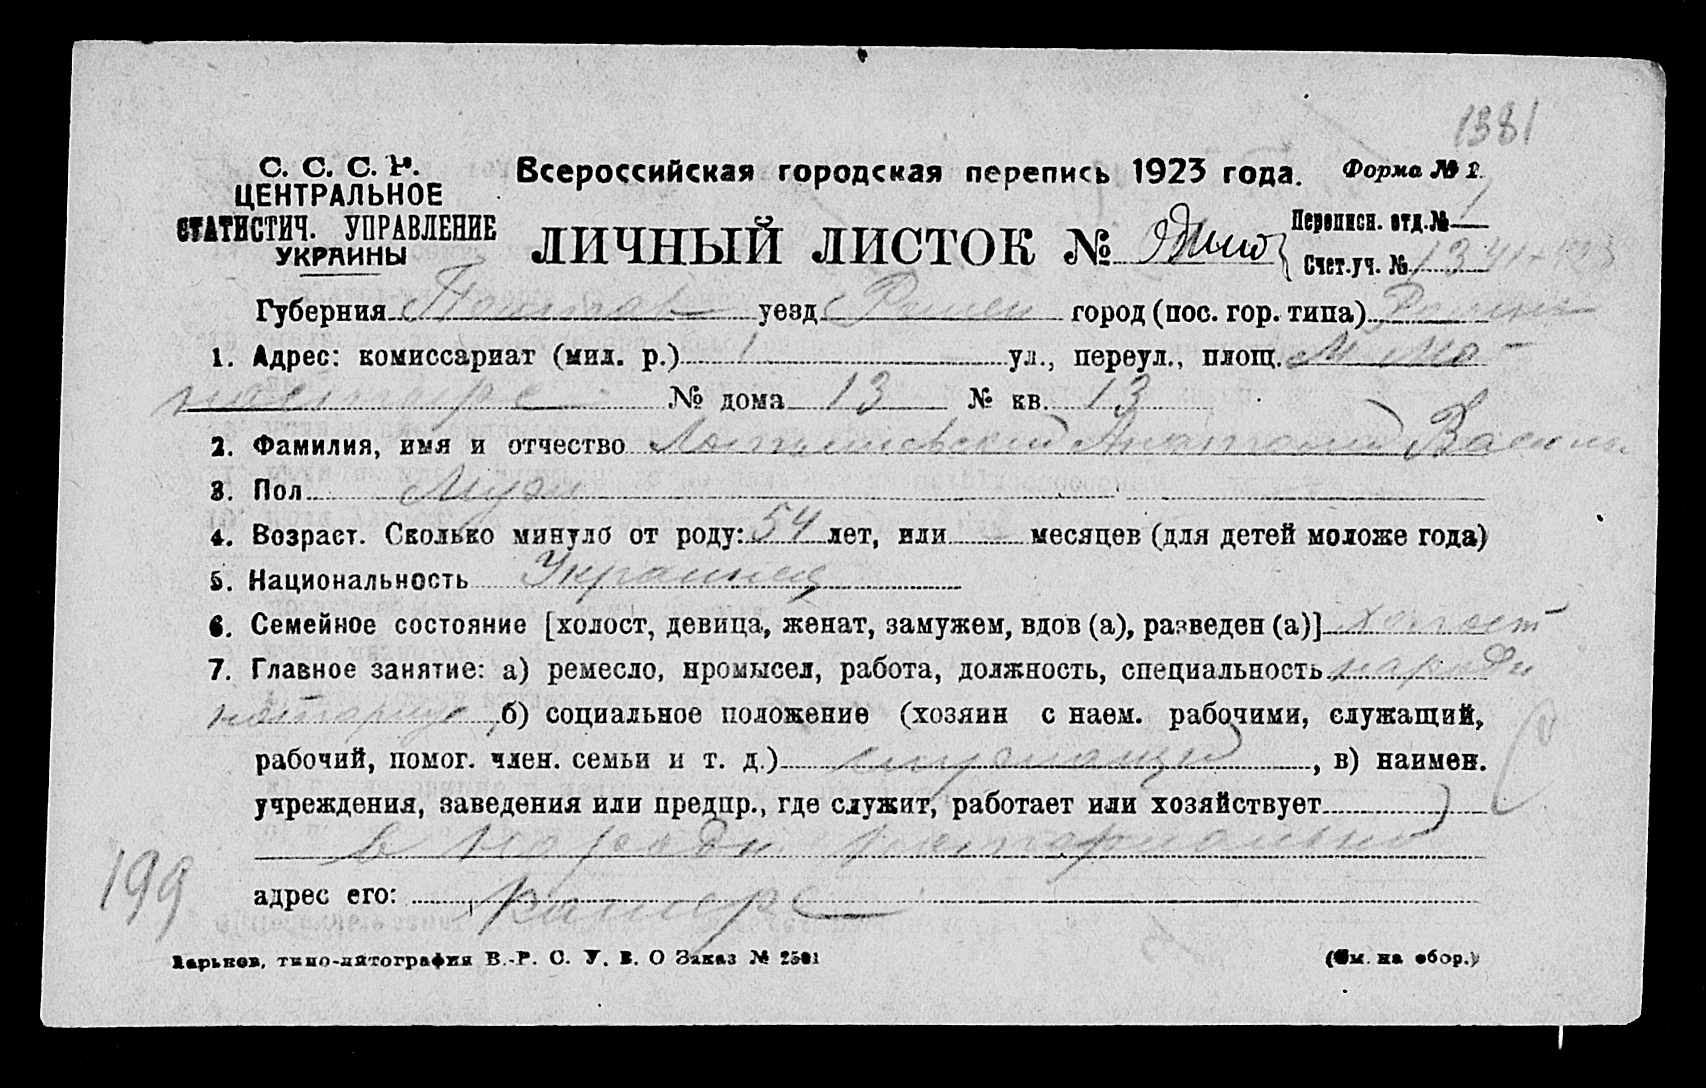 1381
С. С. С. Р.
ЦЕНТРАЛЬНОЕ
СТАТИСТИЧ. УПРАВЛЕНИЕ
УКРАИНЫ
Всероссийская городская перепись 1923 года.
Форма № 2.
ЛИЧНЫЙ ЛИСТОК №
Переписн. отд. № 1
Счет. уч. № 13
Губерния Полтав уезд Ромен город (пос. гор. типа)
1. Адрес: комиссариат (мил. р.) 1 ул., переул., площ.
№ дома 13 № кв. 13
2. Фамилия, имя и отчество Анатолий
3. Пол Муж
4. Возраст. Сколько минуло от роду: 54 лет, или - месяцев (для детей моложе года)
5. Национальность Украинец
6. Семейное состояние [холост, девица, женат, замужем, вдов (а), разведен (а)] холост
7. Главное занятие: а) ремесло, промысел, работа, должность, специальность народн
нотариус, б) социальное положение (хозяин с наем. рабочими, служащий,
рабочий, помог. член. семьи и т. д.) служащий, в) наимен.
учреждения, заведения или предпр., где служит, работает или хозяйствует
в народн нотариальной
адрес его: камере
199
Харьков, типо-литография В.-Р. С. У. В. О Заказ № 2501
(См. на обор.)